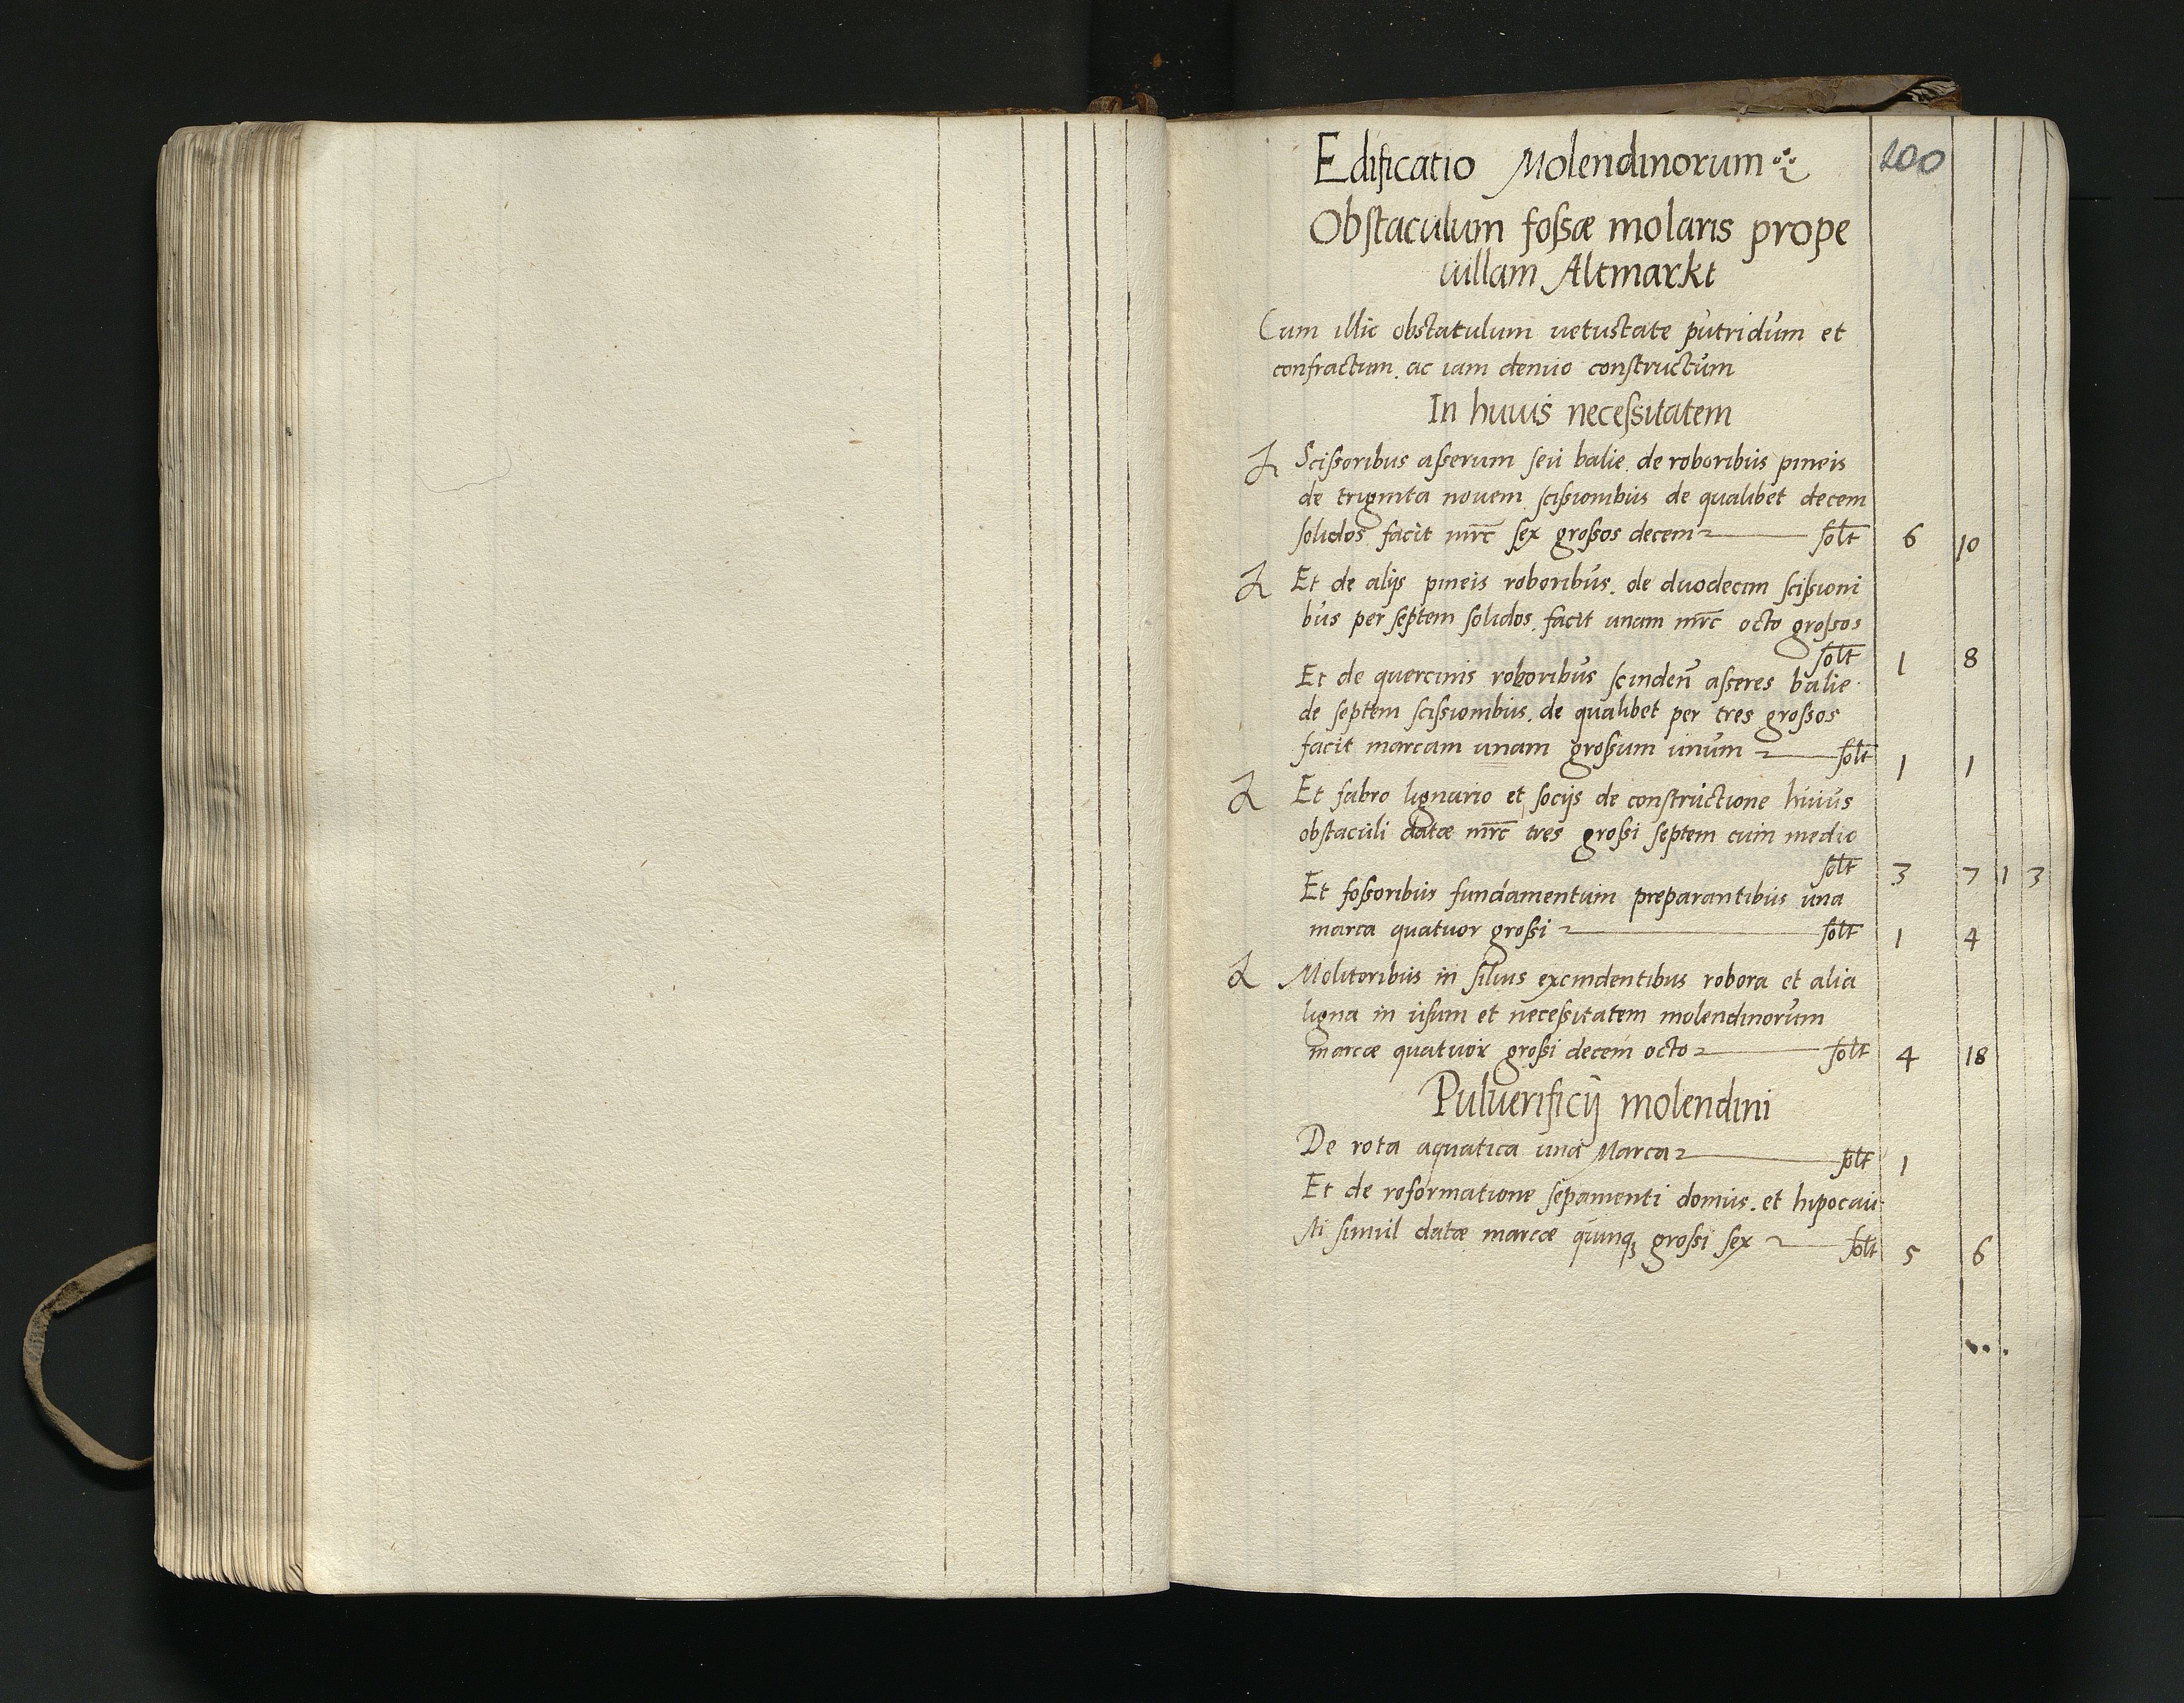 200
Edificatio Molendinorum
Obſtaculum foſsæ molaris prope
uillam Altmarkt
Cum illic obſtatulum uetuſtate putridum et
confractum. ac iam denuo conſtructum
In huius neceſsitatem
Sciſsoribus aſserum ſeu balie. de roboribus pineis
de triginta nouem ſciſsionibus de qualibet decem
ſolidos facit mrc ſex groſsos decem ſolt 6 10
Et de alijs pineis roboribus. de duodecim ſciſsioni
bus per ſeptem ſolidos. facit unam mrc octo groſsos
ſolt 1 8
Et de quercinis roboribus ſcinden aſseres balie
de ſeptem ſciſsionibus. de qualibet per tres groſsos
facit marcam unam groſsum unum ſolt 1 1
Et fabro lignario et ſocijs de conſtructione huius
obſtaculi datæ mrc tres groſsi ſeptem cum medio
ſolt 3 7 1 3
Et foſsoribus fundamentum preparantibus una
marca quatuor groſsi ſolt 1 4
Molitoribus in ſiluis excindentibus robora et alia
ligna in uſum et neceſsitatem molendinorum
marcæ quatuor groſsi decem octo ſolt 4 18
Puluerificij molendini
De rota aquatica una Marca ſolt 1
Et de reformatione ſepamenti domus. et hipocau
ſti ſimul datæ marcæ quinq groſsi ſex ſolt 5 6